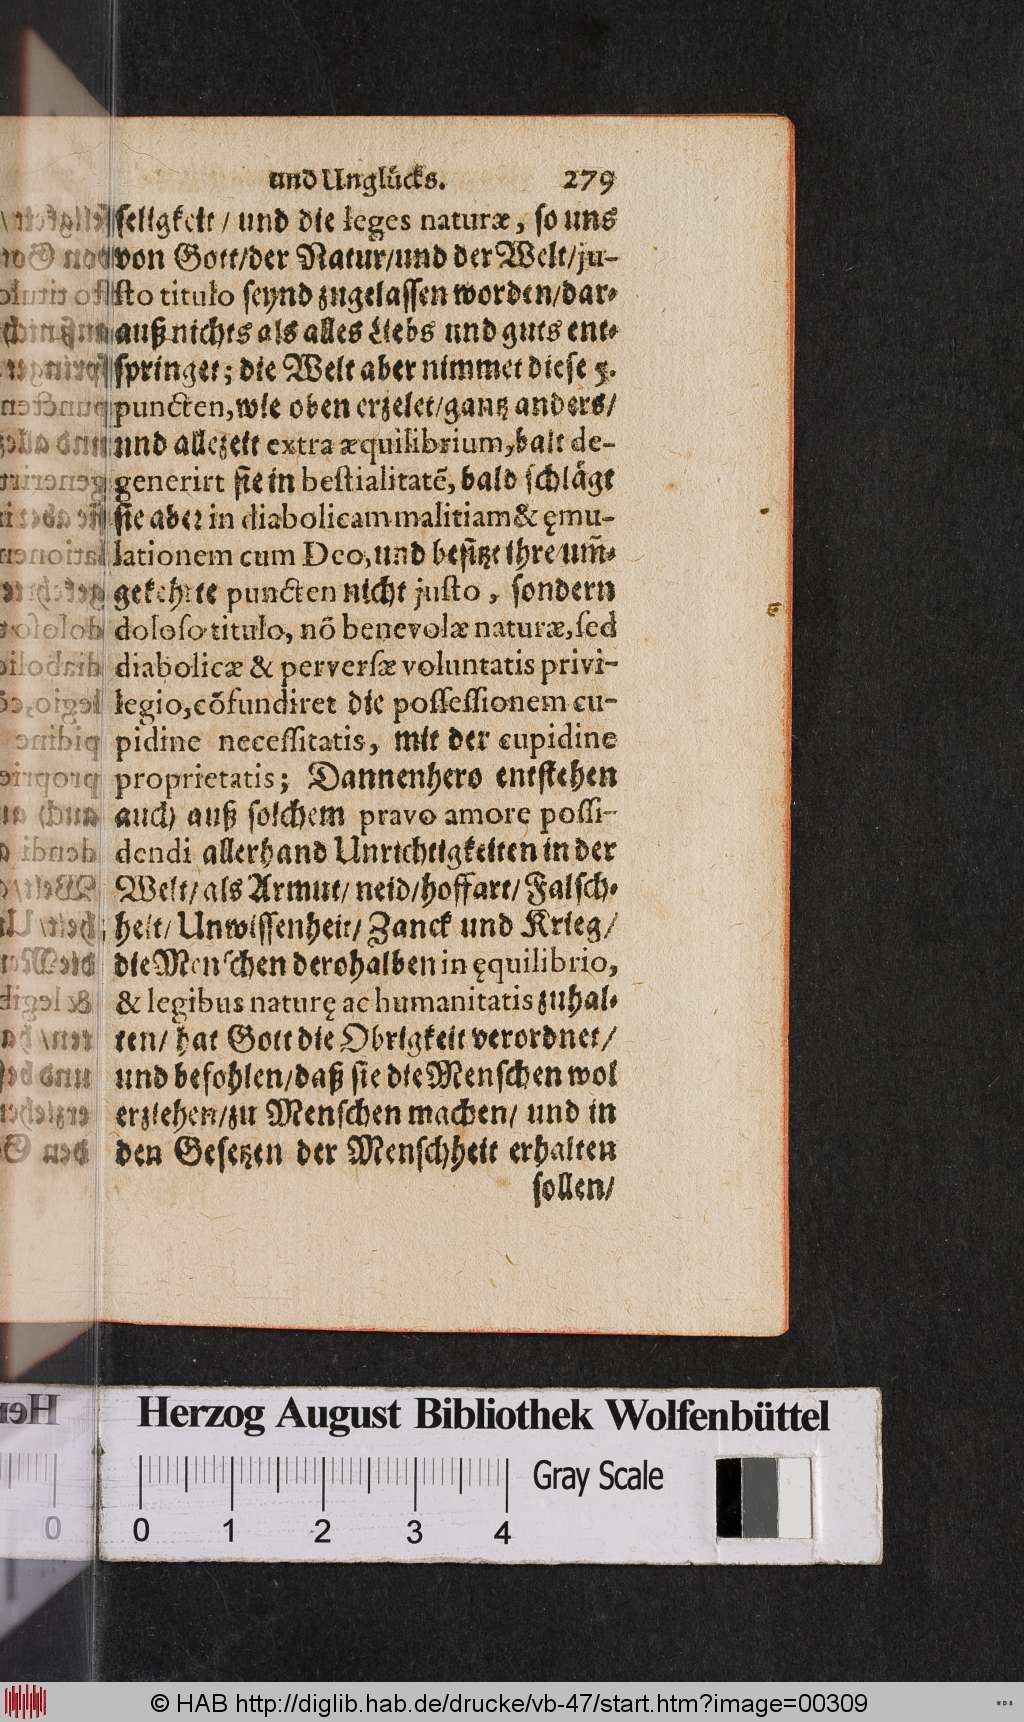 und Unglücks. 279
seligkeit / und die leges naturæ, so uns
von Gott/der Natur/und der Welt/ju-
sto titulo seynd zugelassen worden/dar-
auß nichts als alles Liebs und guts ent-
springet; die Welt aber nimmet diese 5.
puncten, wie oben erzelet/gantz anders/
und allezeit extra æquilibrium, balt de-
generirt sie in bestialitatē, bald schlägt
sie aber in diabolicam malitiam & ęmu-
lationem cum Deo, und besitzt ihre um̄-
gekehrte puncten nicht justo, sondern
doloso titulo, nō benevolæ naturæ, sed
diabolicæ & perversæ voluntatis privi-
legio, cōfundiret die possessionem cu-
pidine necessitatis, mit der cupidine
proprietatis; Dannenhero entstehen
auch auß solchem pravo amore possi-
dendi allerhand Unrichtigkeiten in der
Welt/als Armut/ neid/hoffart/ Falsch-
heit/ Unwissenheit/ Zanck und Krieg/
die Menschen derohalben in ęquilibrio,
& legibus naturę ac humanitatis zuhal-
ten/ hat Gott die Obrigkeit verordnet/
und befohlen/daß sie die Menschen wol
erziehen/zu Menschen machen/ und in
den Gesetzen der Menschheit erhalten
sollen/
Herzog August Bibliothek Wolfenbüttel
Gray Scale
0 1 2 3 4
© HAB http://diglib.hab.de/drucke/vb-47/start.htm?image=00309